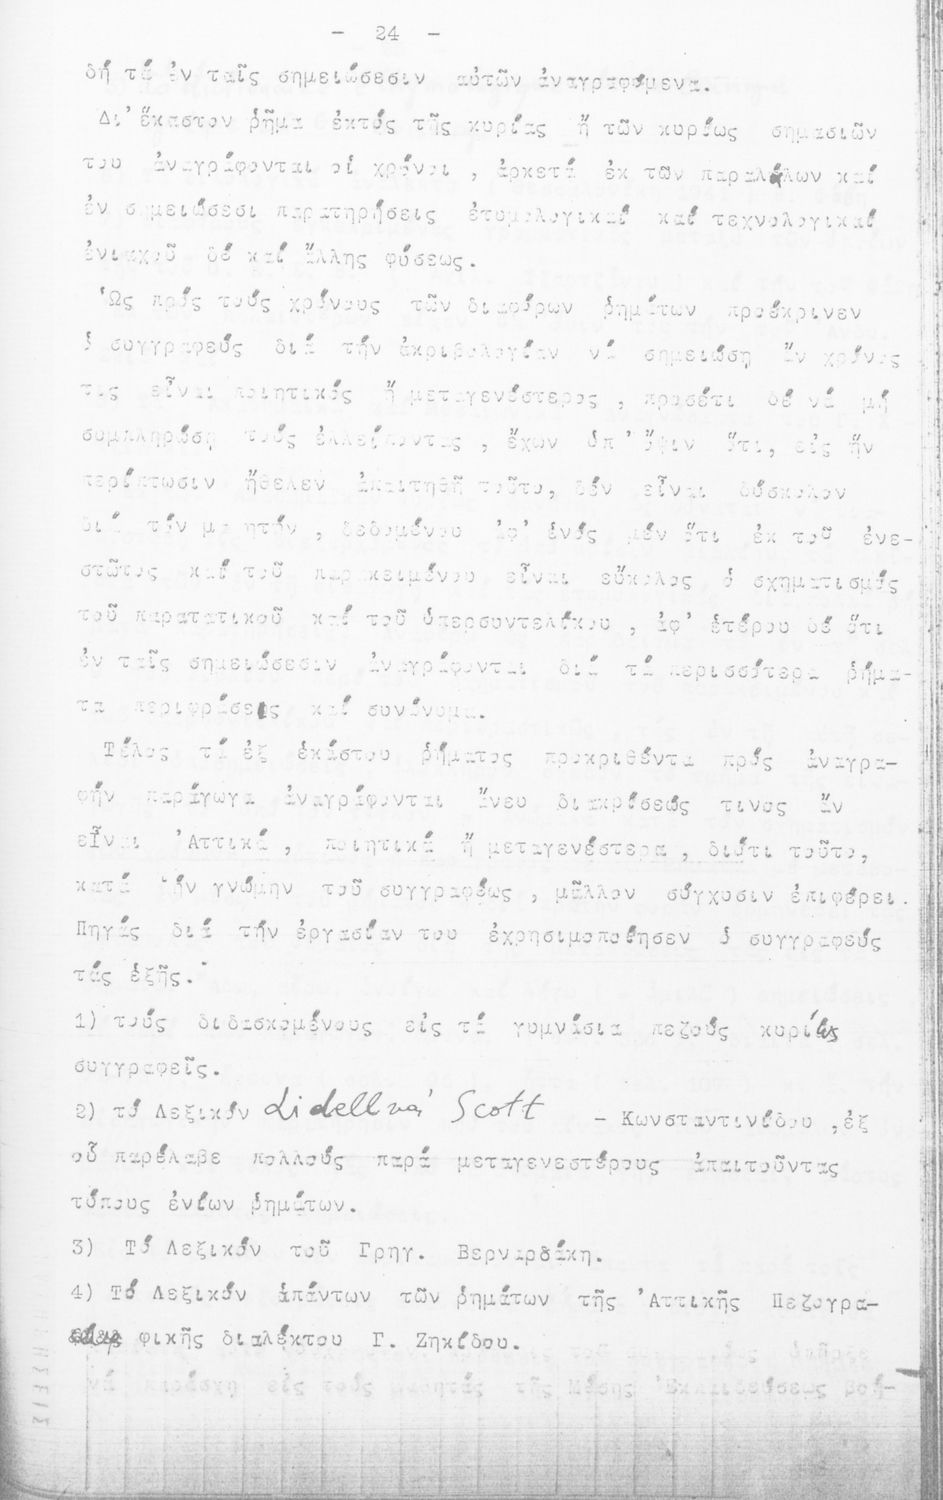 - 24 -
δή τά ἐν ταῖς σημειώσεσιν αὐτῶν ἀναγραφόμενα.
Δι' ἕκαστον ῥῆμα ἐκτός τῆς κυρίας ἤ τῶν κυρίως σημασιῶν
του ἀναγράφονται οἱ χρόνοι , ἀρκετά ἐκ τῶν παραλλήλων καί
ἐν σημειώσεσι παρατηρήσεις ἐτυμολογικαί καί τεχνολογικαί
ἐνιαχοῦ δέ καί ἄλλης φύσεως.
Ὡς πρός τούς χρόνους τῶν διαφόρων ῥημάτων προέκρινεν
ὁ συγγραφεύς διά τήν ἀκριβολογίαν νά σημειώση ἄν χρόνος
τις εἶναι ποιητικός ἤ μεταγενέστερος , προσέτι δέ νά μή
συμπληρώση τούς ἐλλείποντας , ἔχων ὑπ' ὄψιν ὅτι, εἰς ἥν
περίπτωσιν ἤθελεν ἀπαιτηθῆ τοῦτο, δέν εἶναι δύσκολον
διά τόν μαθητήν , δεδομένου ἀφ' ἑνός μέν ὅτι ἐκ τοῦ ἐνε-
στῶτος καί τοῦ παρακειμένου εἶναι εὔκολος ὁ σχηματισμός
τοῦ παρατατικοῦ καί τοῦ ὑπερσυντελίκου , ἀφ' ἑτέρου δέ ὅτι
ἐν ταῖς σημειώσεσιν ἀναγράφονται διά τά περισσότερα ῥήμα-
τα περιφράσεις καί συνώνυμα.
Τέλος τά ἐξ ἑκάστου ῥήματος προκριθέντα πρός ἀναγρα-
φήν παράγωγα ἀναγράφονται ἄνευ διακρίσεώς τινος ἄν
εἶναι 'Αττικά , ποιητικά ἤ μεταγενέστερα , διότι τοῦτο,
κατά τήν γνώμην τοῦ συγγραφέως , μᾶλλον σύγχυσιν ἐπιφέρει.
Πηγάς διά τήν ἐργασίαν του ἐχρησιμοποίησεν ὁ συγγραφεύς
τάς ἑξῆς.
1) τούς διδασκομένους εἰς τά γυμνάσια πεζούς κυρίως
συγγραφεῖς.
2) τό Λεξικόν Lidell καί Scott - Κωνσταντινίδου ,ἐξ
οὗ παρέλαβε πολλούς παρά μεταγενεστέρους ἀπαιτοῦντας
τύπους ἐνίων ῥημάτων.
3) Τό Λεξικόν τοῦ Γρηγ. Βερναρδάκη.
4) Τό Λεξικόν ἁπάντων τῶν ῥημάτων τῆς 'Αττικῆς Πεζογρα-
φικῆς διαλέκτου Γ. Ζηκίδου.